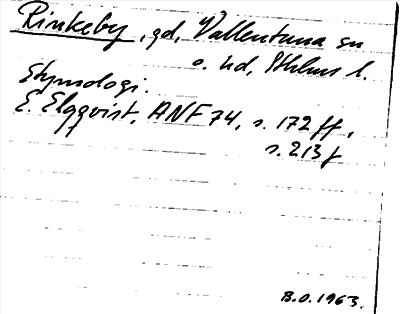 Rinkeby, gd, Vallentuna sn
o. hd, Sthlms l.
Etymologi.
E. Elgqvist, ANF 74, s. 172 ff,
s. 213 f
B.O. 1963.